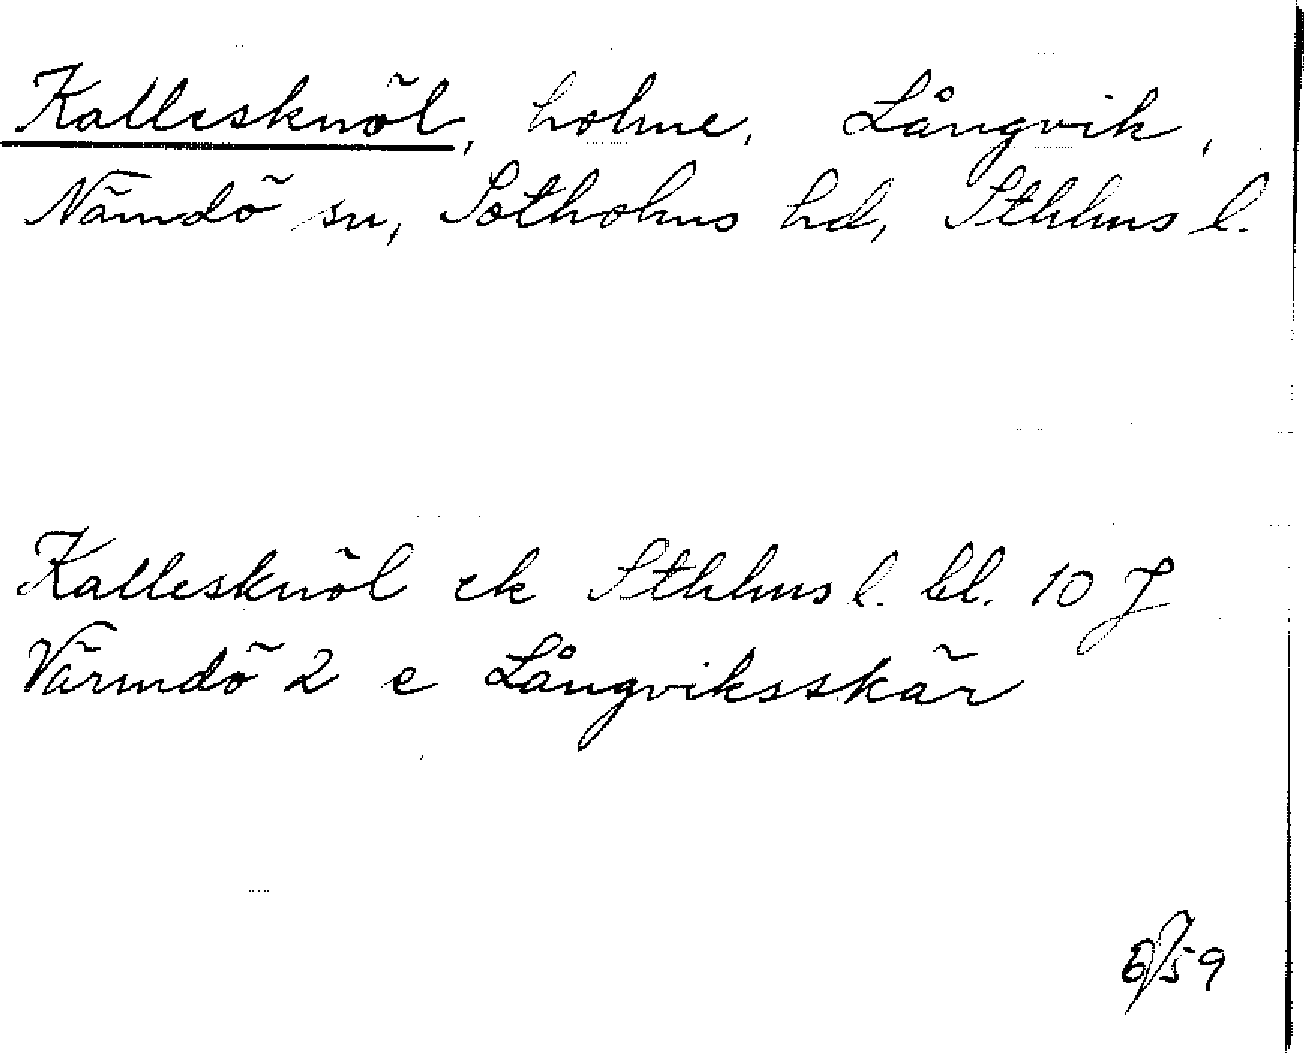 Kallesknöl, holme, Långvik,
Nämdö sn, Sotholms hd, Sthlms l.
Kallesknöl ek Sthlms l. bl. 10 J
Värmdö 2 e Långviksskär
59